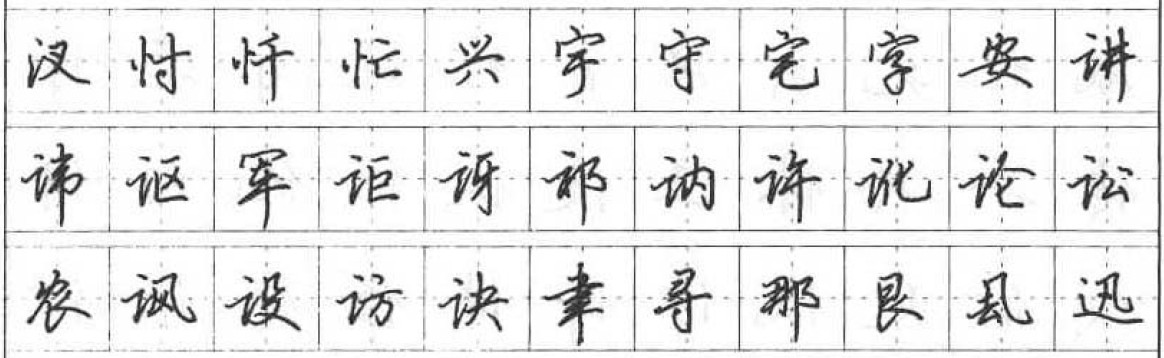 汊忖忏忙兴宇守宅字安讲
讳讴军讵讶祁讷许讹论讼
农讽设访诀聿寻那艮厾迅